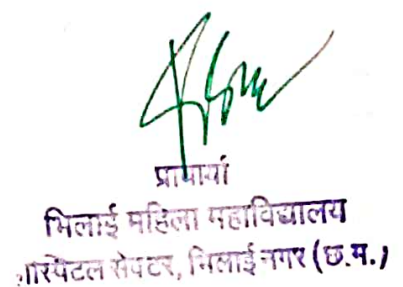 प्राचार्या
भिलाई महिला महाविद्यालय
हास्पिटल सेक्टर, भिलाई नगर (छ.ग.)